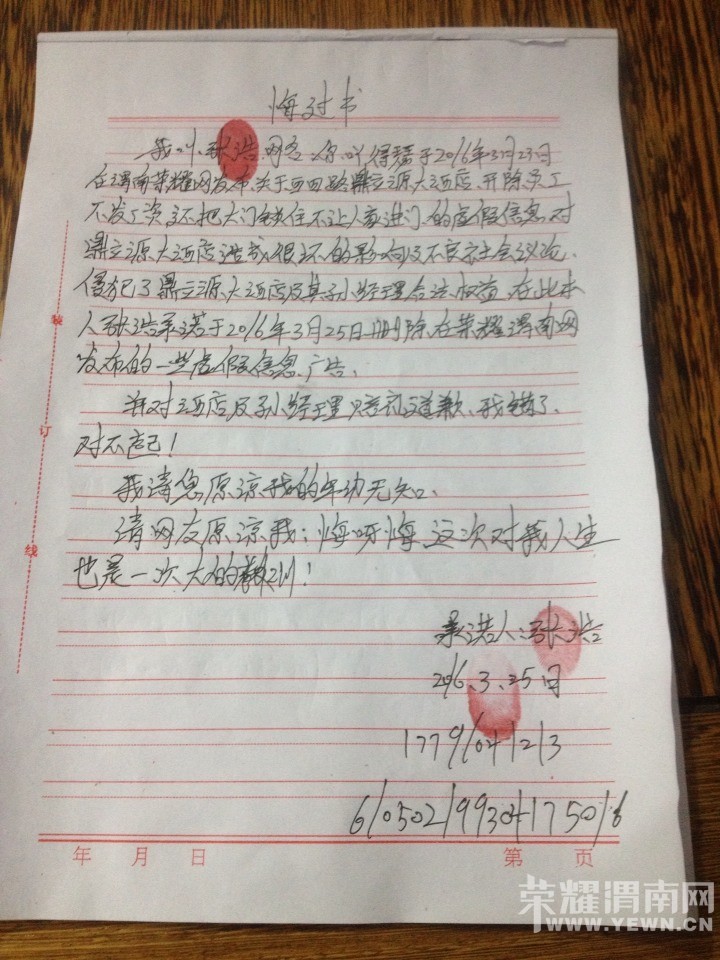 悔过书
我叫张浩网名:你吖得瑟于2016年3月23日
在渭南荣耀网发布关于西四路鼎立源大酒店、开除员工
不发工资还把大门锁住不让人家进门的虚假信息,对
鼎立源大酒店造成很坏的影响及不良社会议论、
侵犯了鼎立源大酒店及其孙经理合法权益,在此本
人张浩承诺于2016年3月25日删除在荣耀渭南网
发布的一些虚假信息、广告、
并对酒店及孙经理赔礼道歉、我错了、
对不起!
我请您原谅我的年幼无知、
请网友原谅我;悔呀悔这次对我人生
也是一次大的教训!
承诺人:张浩
2016.3.25日
17791041213
装
订
线
年 月 日 第 页
荣耀渭南网
WWW.YEWN.CN